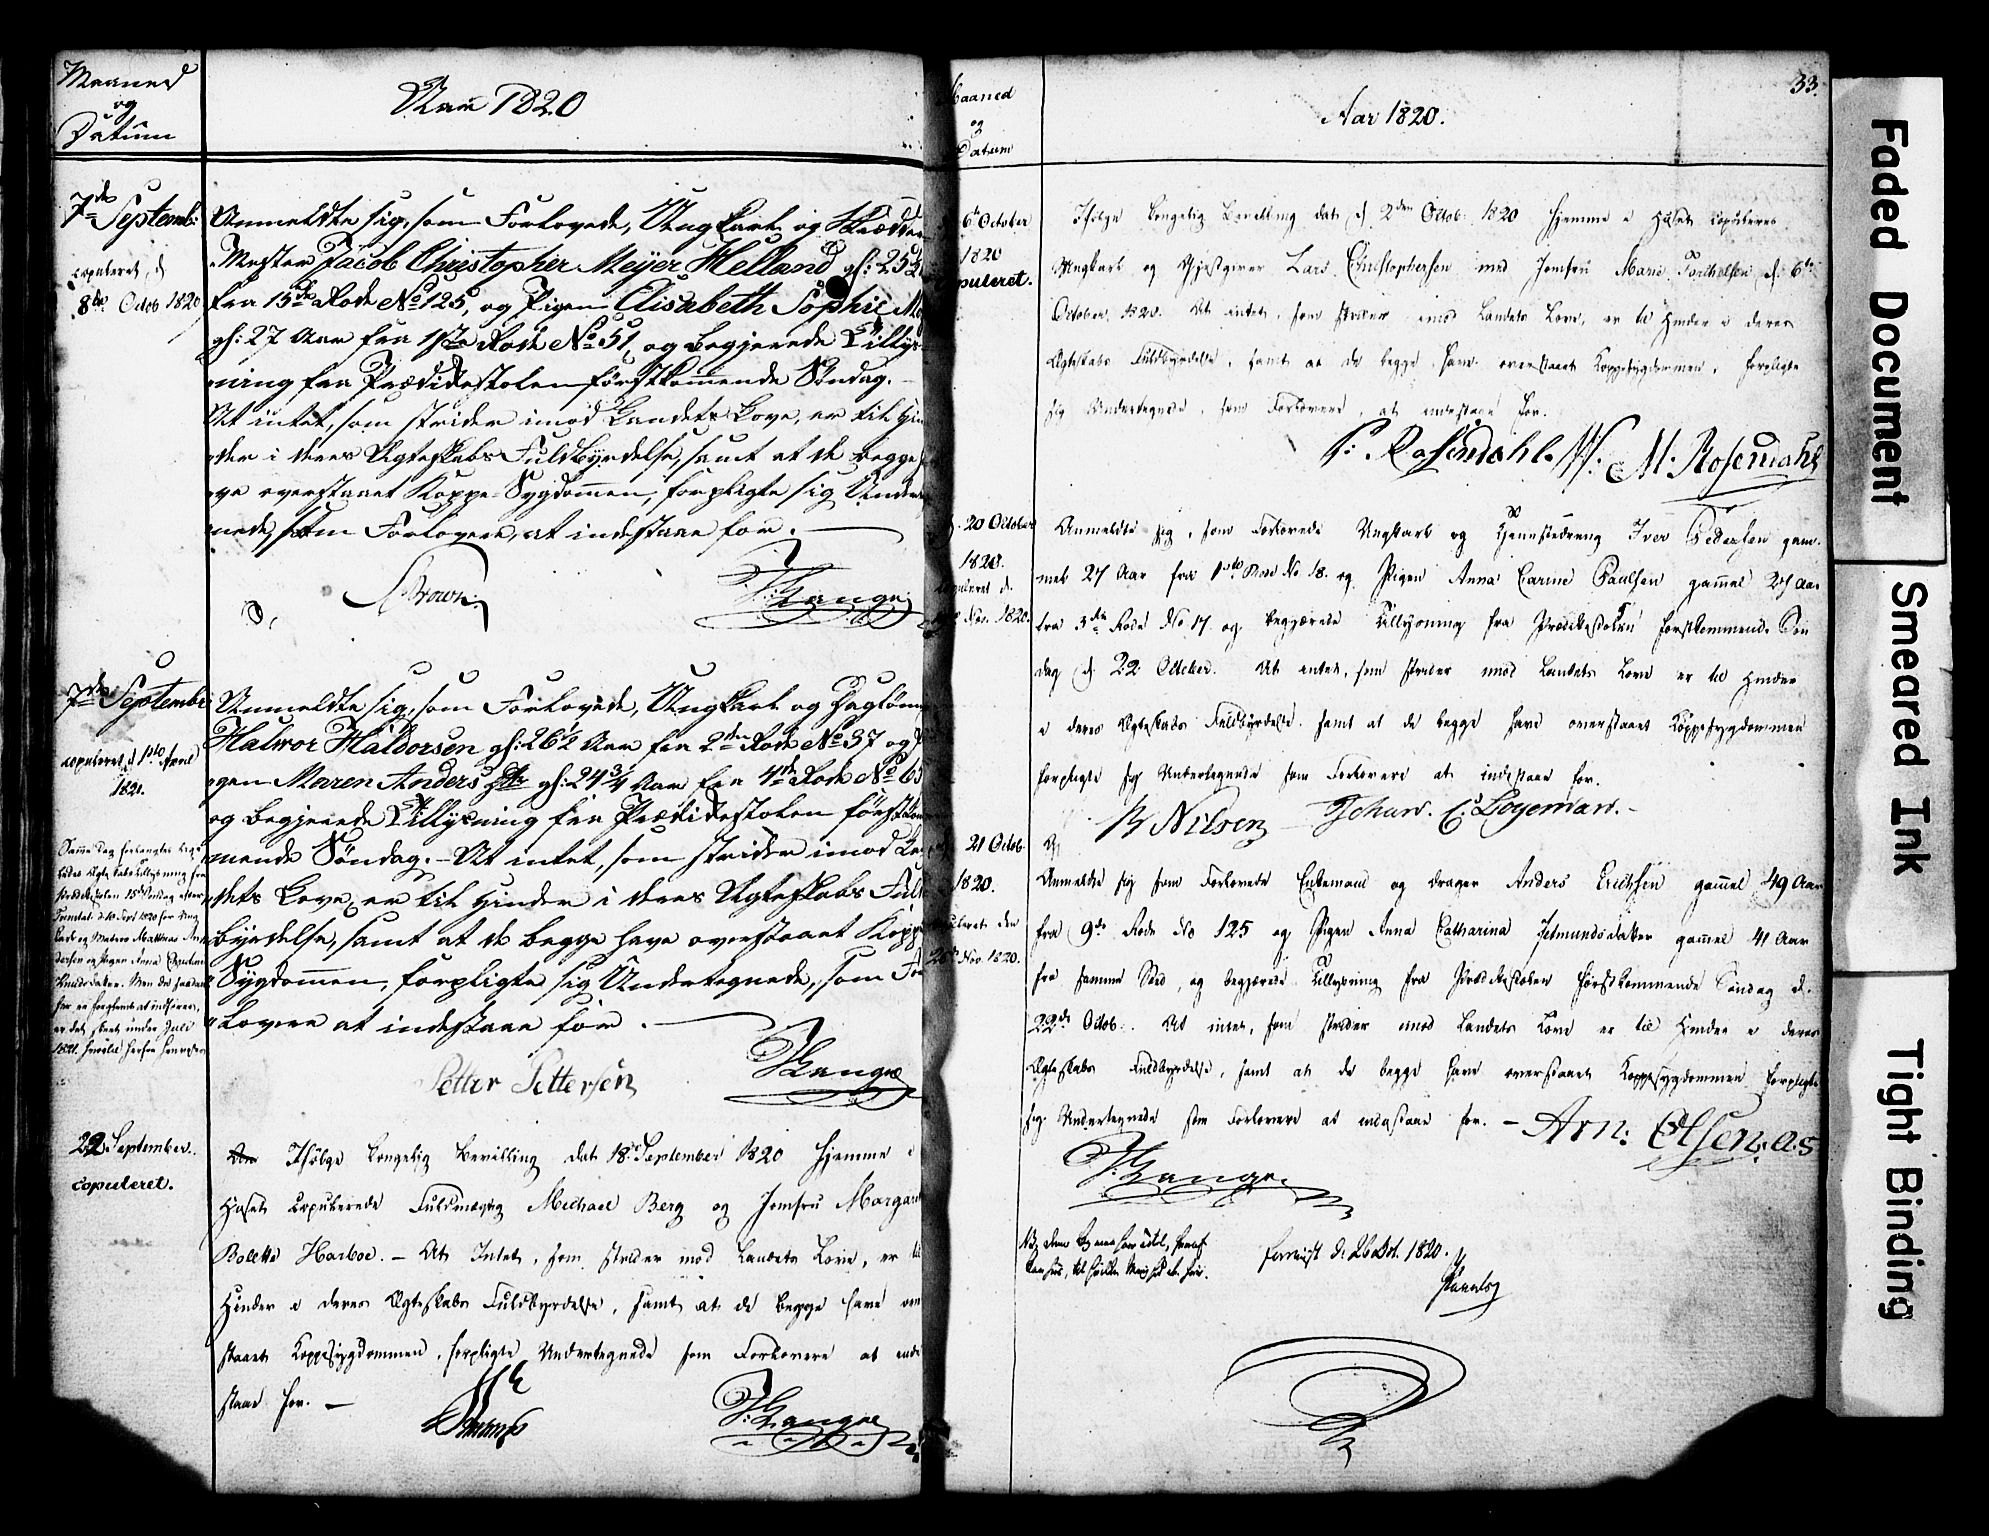 Maaned
og
Datum
Aar 1820
7de Septembr
copuleret d
8de Octob 1820
Anmeldte sig, som Forlovede, Ungkarl og Skrædder
Mester Jacob Christopher Meÿer Helland, gl: 25½
fra 15de Rode No 125, og Pigen Elisabeth Sophie
gl: 27 Aar fra 1ste Rode No 51, og begjerede Tillys-
ning fra Prædikestolen førstkommende Søndag. -
At intet, som strider imod Landets Love, er til Hin
der i deres Ægteskabs Fuldbyrdelse, samt at de begge ha
ve overstaaet Koppe-Sygdommen, forpligte sig Underteg
nede, som Forlovere, at indestaae for.
Brown
J: Lange
7de Septembr
copuleret d 1ste April
1821.
Anmeldte sig, som Forlovede, Ungkarl og Dagløn
Halvor Haldorsen gl: 26½ Aar fra 2den Rode No 37 og Pi
gen Maren Andersdtr gl: 24¾ Aar fra 4de Rode No 65
og begjerede Tillysning fra Prædikestolen førstkom
mende Søndag. - At intet, som strider imod Lan
dets Love, er til Hinder i deres Ægteskabs Fuld
byrdelse, samt at de begge have overstaaet Koppe
Sygdommen, forpligte sig Undertegnede, som For
lovere at indestaae for.
Samme Dag forlangtes lige
ledes Ægteskabstillysning fra
Prædikestolen 15de Søndag efter
Trinitat. d 10 Sept 1820 for Ung
karl og Matros Matthias An
dersen og Pigen Anna
Knudsdatter. Men da
her er forglemt at indføres,
er det skeet under Juli
1821, hvortil herfra henvises
Petter Pettersen
J: Lange
22de September.
copuleret.
Ifølge Kongelig Bevilling dat 18de September 1820 hjemme i
Huset Copulerede Fuldmægtig Michael Berg og Jomfru Margare
Bolette Harboe. - At Intet, som strider mod Landets Love, er til
Hinder i deres Ægteskabs Fuldbyrdelse, samt at de begge have over
staaet Koppesygdommen, forpligte Undertegnede som Forlovere at inde
staae for. -
J: Lange
33.
Maaned
og
Datum
Aar 1820.
6te October
1820
puleret.
Ifølge Kongelig Bevilling dat d. 2den Octob: 1820 hjemme i Huset copuleres
Ungkarl og Gjæstgiver Lars Christophersen med Jomfru Marie Torkelsen d. 6te
October 1820. At intet, som strider imod Landets Love, er til Hinder i deres
Ægteskabs Fuldbyrdelse, samt at de begge have overstaaet Koppesygdommen, forpligte
sig Undertegnede, som Forlovere, at indestaae for.
P: Rosendahl M: Rosendahl
20 October
1820.
copuleret d.
Nov. 1820.
Anmeldte sig, som Forlovede Ungkarl og Tjenestedreng Iver Pedersen gam
mel 27 Aar fra 1ste Rode No 18. og Pigen Anna Carine Paulsen gammel 27 Aar
fra 3die Rode No 17. og begjærede Tillysning fra Prædikestolen førstkommende Søn
dag d 22 October. At intet, som strider imod Landets Love er til Hinder
i deres Ægteskabs Fuldbyrdelse samt at de begge have overstaaet Koppesygdommen
forpligte sig Undertegnede som Forlovere at indestaae for.
Nilsen Johan. C. Logeman. -
21 Octob.
1820.
copuleret den
26de Nov. 1820.
Anmeldte sig som Forlovede Enkemand og Drager Anders Erichsen gammel 49 Aar
fra 9de Rode No 125 og Pigen Anna Catharina Jetmundsdatter gammel 41 Aar
fra samme Sted, og begjærede Tillysning fra Prædikestolen førstkommende Søndag d.
22de Octob. At intet, som strider imod Landets Love er til Hinder i deres
Ægteskabs Fuldbyrdelse, samt at de begge have overstaaet Koppesygdommen forpligte
sig Undertegnede som Forlovere at indestaae for. - Arn: Olsen.
J: Lange.
foreviist d. 26 Oct. 1820.
Faded Document
Smeared Ink
Tight Binding